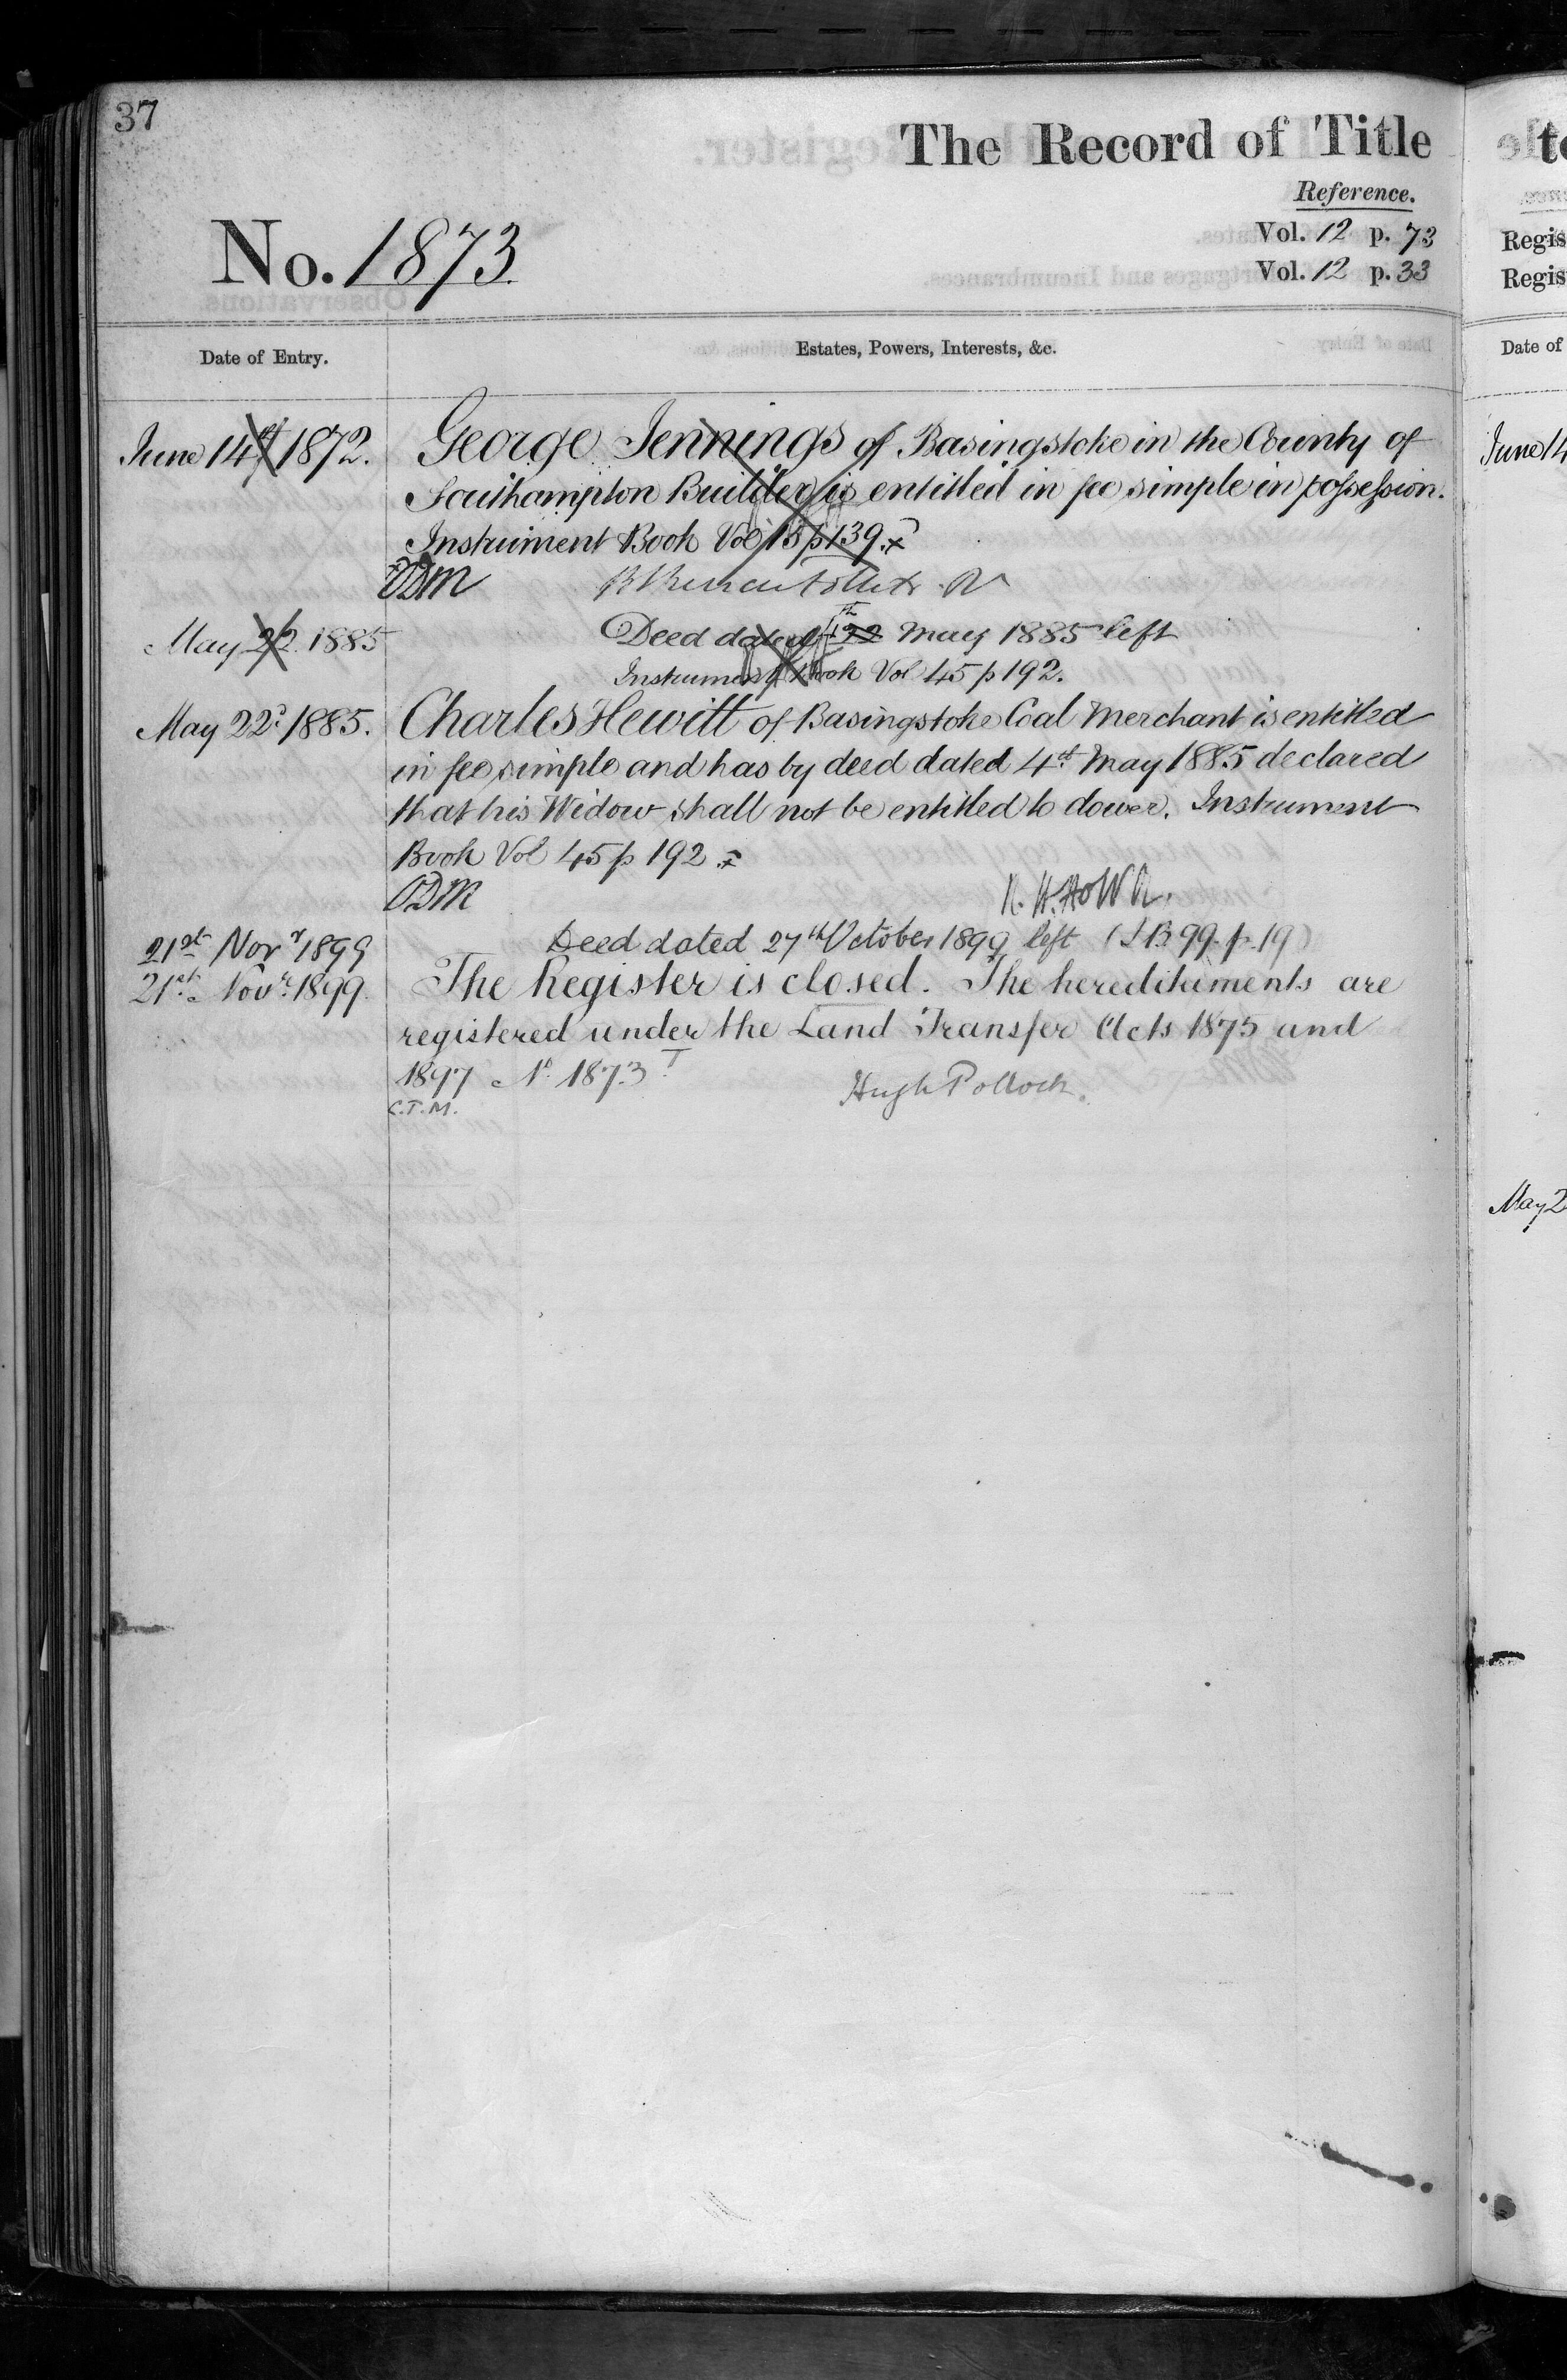 37
The Record of Title
Reference.
No. 1873.
Vol. 12 p. 73
Vol. 12 p. 33
Regis
Regis
Date of Entry.
Estates, Powers, Interests, &c.
Date of
June 14th 1872.
George Jennings of Basingstoke in the County of
Southampton Builder is entitled in fee simple in possession.
Instrument Book Vol 15 p 139.
June 14
ODM
May 22 1885
Deed dated 4th 22 May 1885 left
Instrument Book Vol 45 p 192.
May 22d. 1885.
Charles Hewitt of Basingstoke Coal Merchant is entitled
in fee simple and has by deed dated 4th. May 1885 declared
that his Widow shall not be entitled to dower. Instrument
Book Vol 45 p 192.
ODM
21st Novr 1899
Deed dated 27th October 1899 left (I B 99. p. 19)
21st. Novr. 1899.
The Register is closed. The hereditaments are
registered under the Land Transfer Acts 1875 and
1897 No. 1873T.
Hugh Pollock.
C.T.M.
May 2